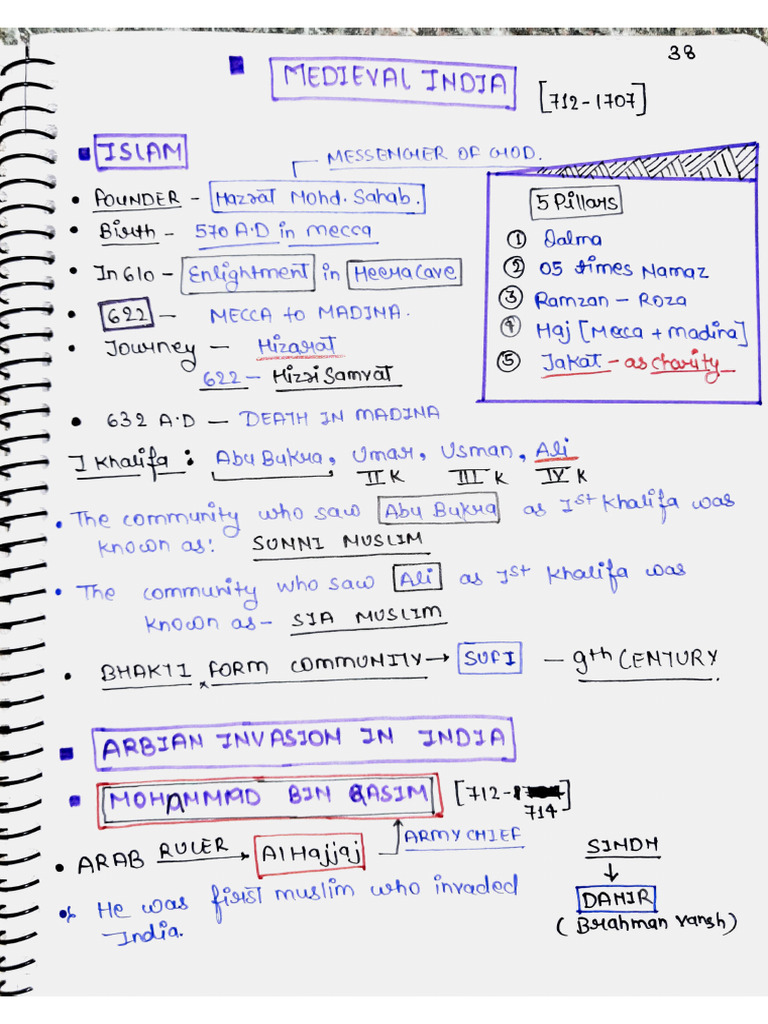 38
MEDIEVAL INDIA
[712-1707]
ISLAM
MESSENGER OF GOD.
• FOUNDER - Hazrat Mohd. Sahab.
• Birth - 570 A.D in mecca
• In 610 - Enlightment in Heera Cave
• 622 - MECCA to MADINA.
• Journey - Hizarat
622 - Hizri Samvat
• 632 A.D - DEATH IN MADINA
5 Pillars
① Dalma
② 05 times Namaz
③ Ramzan - Roza
④ Haj [Mecca + madina]
⑤ Jakat - as charity
I Khalifa : Abu Bukra, Umar, Usman, Ali
II K III K IV K
• The community who saw Abu Bukra as Ist Khalifa was
known as: SUNNI MUSLIM
• The community who saw Ali as Ist Khalifa was
known as - SIA MUSLIM
• BHAKTI FORM COMMUNITY → SUFI - 9th CENTURY.
ARBIAN INVASION IN INDIA
MOHAMMAD BIN QASIM [712-714]
ARMY CHIEF
• ARAB RULER → Al Hajjaj
• He was first muslim who invaded
India.
SINDH
↓
DAHIR
(Brahman vansh)